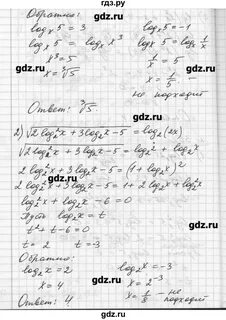 Обратно:
log_x 5 = 3    log_x 5 = -1
log_x 5 = log_x x³    log_x 5 = log_x 1/x
x³ = 5    1/x = 5
x = ∛5    x = 1/5 –
не подходит
Ответ: ∛5.
2) √(2 log₂² x + 3 log₂ x - 5) = log₂(2x)
√(2 log₂² x + 3 log₂ x - 5) = log₂ 2 + log₂ x
2 log₂² x + 3 log₂ x - 5 = (1 + log₂ x)²
2 log₂² x + 3 log₂ x - 5 = 1 + 2 log₂ x + log₂² x
log₂² x + log₂ x - 6 = 0
Пусть log₂ x = t
t² + t - 6 = 0
t = 2    t = -3
Обратно:
log₂ x = 2    log₂ x = -3
x = 4    x = 2⁻³
x = 1/8 – не подходит
Ответ: 4